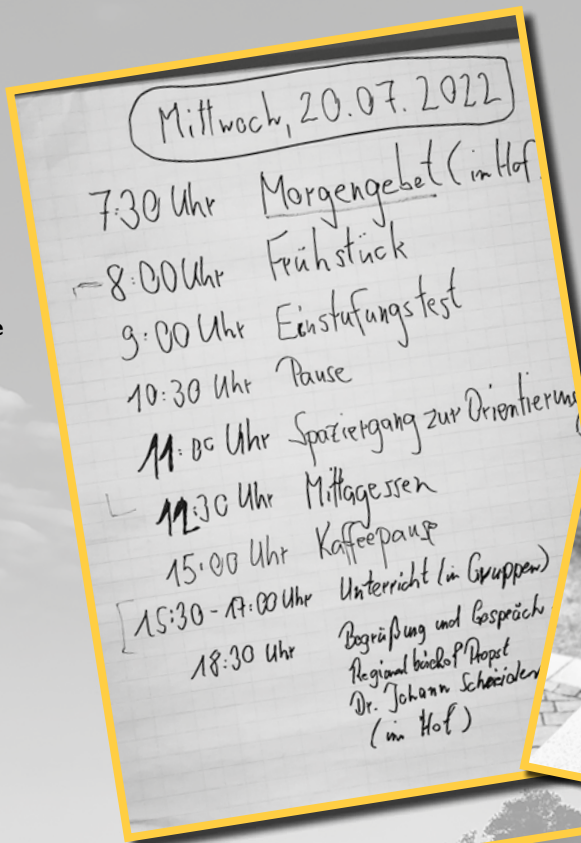 Mittwoch, 20.07.2022
7:30 Uhr Morgengebet (im Hof
8:00 Uhr Frühstück
9:00 Uhr Einstufungstest
10:30 Uhr Pause
11:00 Uhr Spaziergang zur Orientierung
12:30 Uhr Mittagessen
15:00 Uhr Kaffeepause
15:30 - 17:00 Uhr Unterricht (in Gruppen)
18:30 Uhr Begrüßung und Gespräch
Regionalbischof Propst
Dr. Johann Schneider
(im Hof)